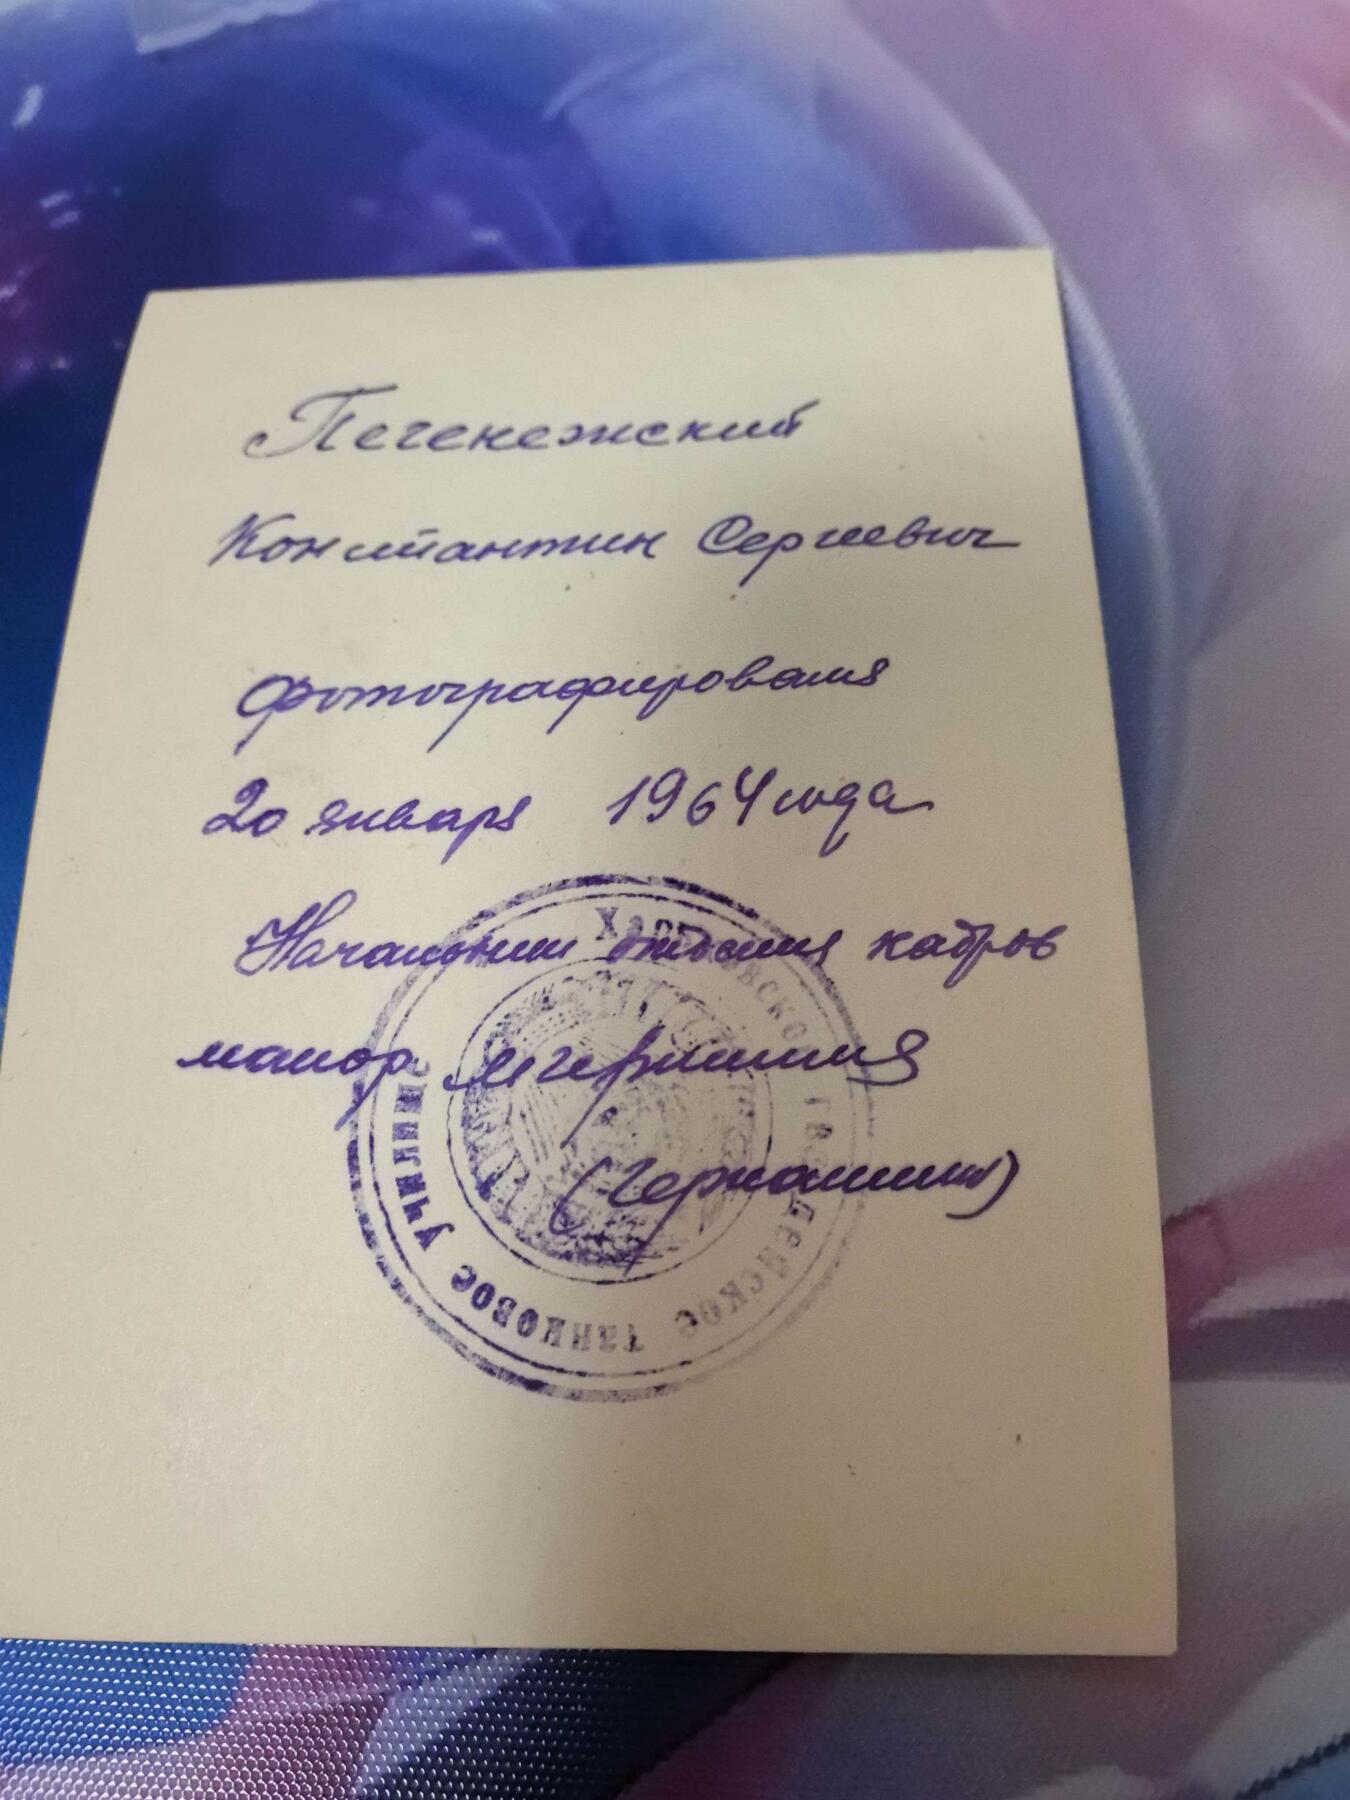 Печенежский
Константин Сергеевич
фотографировался
20 января 1964 года
Начальник отделения кадров
майор
ХАРЬКОВСКОЕ ГВАРДЕЙСКОЕ ТАНКОВОЕ УЧИЛИЩЕ